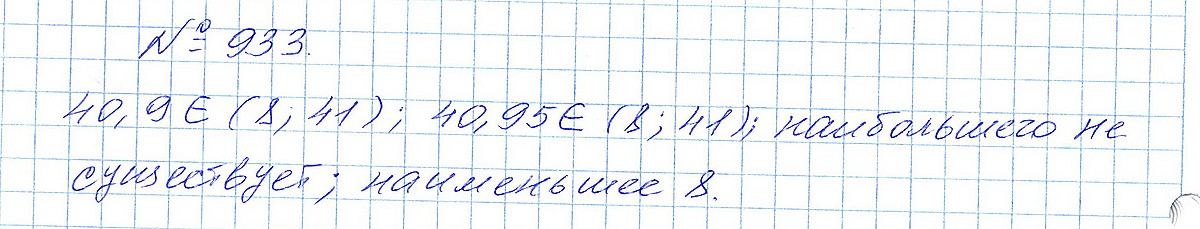 № 933.
40,9 Є (8; 41); 40,95 Є (8; 41); наибольшего не
существует; наименьшее 8.